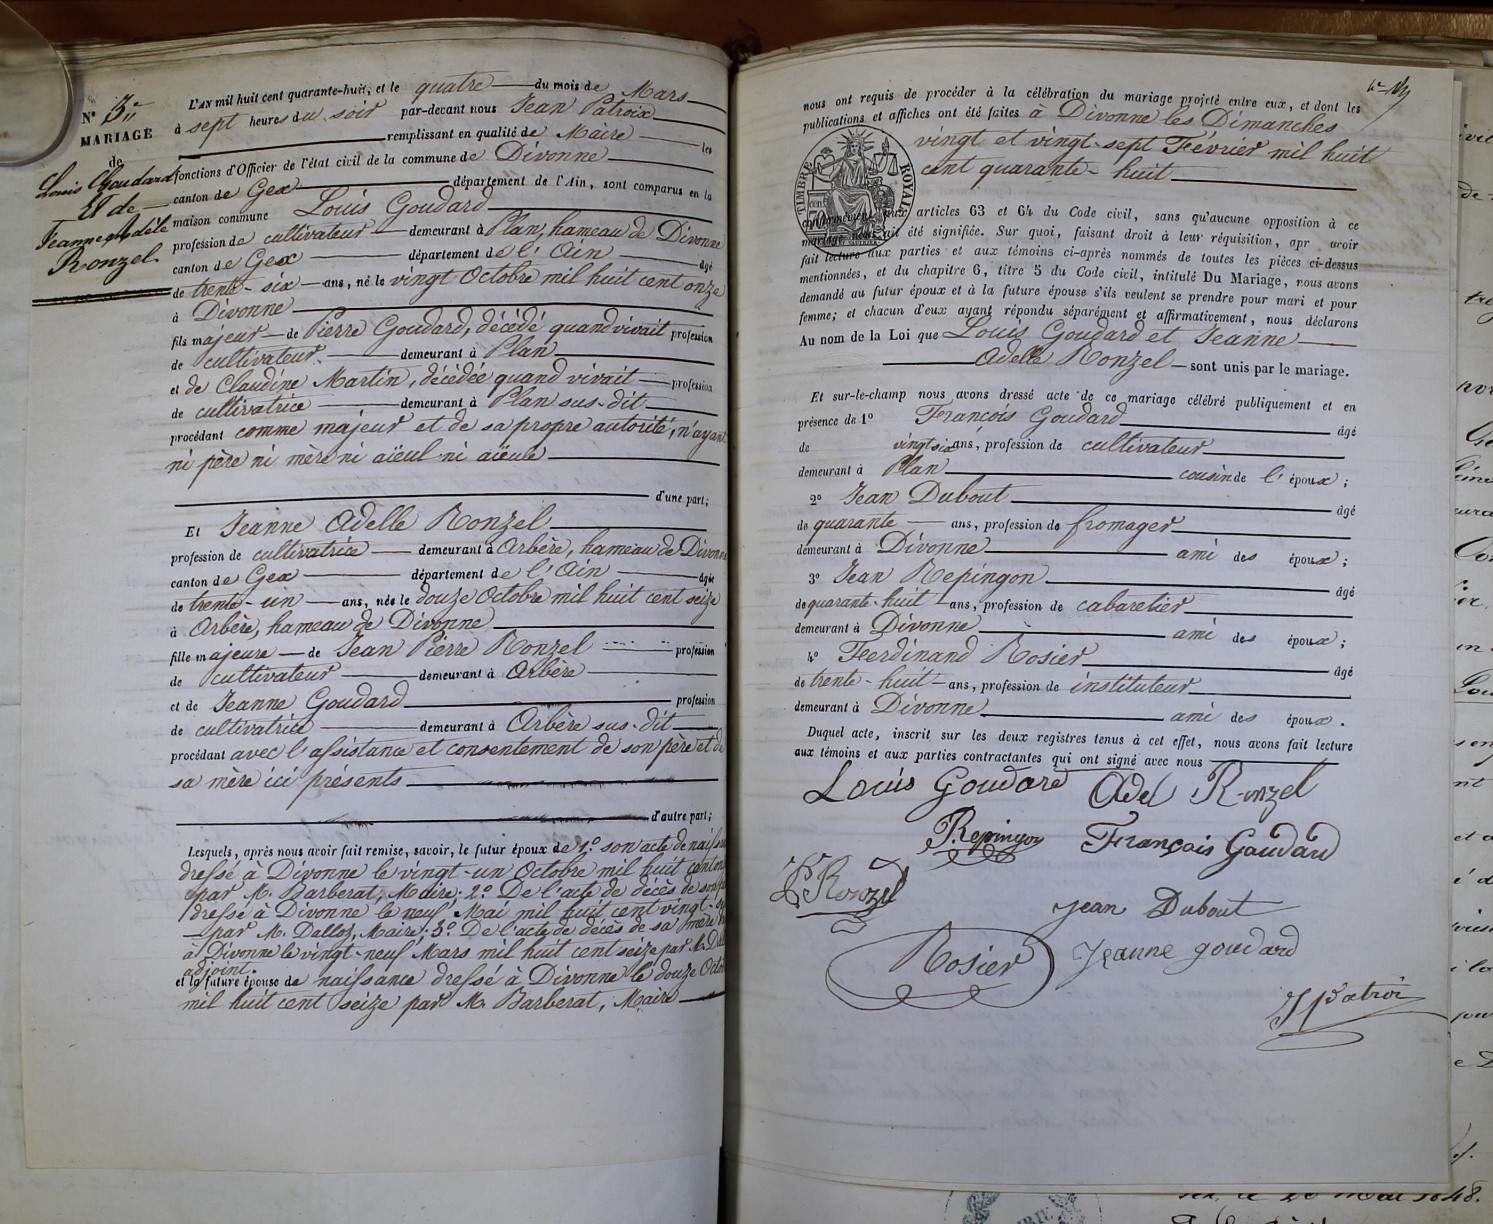 N° 3
MARIAGE
de
Louis Goudard
Et de
Jeanne Adèle
Ronzel
L'AN mil huit cent quarante-huit, et le quatre du mois de Mars
à sept heures du soir par-devant nous Jean Patroix
remplissant en qualité de Maire les
fonctions d'Officier de l'état civil de la commune de Divonne
canton de Gex département de l'Ain, sont comparus en la
maison commune Louis Goudard
profession de cultivateur demeurant à Plan, hameau de Divonne
canton de Gex département de l'Ain âgé
de trente-six ans, né le vingt Octobre mil huit cent onze
à Divonne
fils majeur de Pierre Goudard, décédé quand vivait profession
de cultivateur demeurant à Plan
et de Claudine Martin, décédée quand vivait profession
de cultivatrice demeurant à Plan sus-dit
procédant comme majeur et de sa propre autorité, n'ayant
ni père ni mère ni aïeul ni aïeule
d'une part;
Et Jeanne Adelle Ronzel
profession de cultivatrice demeurant à Arbère, hameau de Divonne
canton de Gex département de l'Ain âgée
de trente-un ans, née le douze Octobre mil huit cent seize
à Arbère, hameau de Divonne
fille majeure de Jean Pierre Ronzel profession
de cultivateur demeurant à Arbère
et de Jeanne Goudard profession
de cultivatrice demeurant à Arbère sus-dit
procédant avec l'assistance et consentement de son père et de
sa mère ici présents
d'autre part;
Lesquels, après nous avoir fait remise, savoir, le futur époux de 1° son acte de naissa
dressé à Divonne le vingt-un Octobre mil huit cent onze
par M. Barberat, Maire; 2° De l'acte de décès de son
dressé à Divonne le neuf Mai mil huit cent vingt-
par M. Dalloz, Maire; 3° De l'acte de décès de sa mère
à Divonne le vingt-neuf Mars mil huit cent seize par M.
adjoint.
et la future épouse de naissance dressé à Divonne le douze Octo
mil huit cent seize par M. Barberat, Maire
nous ont requis de procéder à la célébration du mariage projeté entre eux, et dont les
publications et affiches ont été faites à Divonne les Dimanches
vingt et vingt-sept Février mil huit
cent quarante-huit
TIMBRE ROYAL
conformément aux articles 63 et 64 du Code civil, sans qu'aucune opposition à ce
mariage nous ait été signifiée. Sur quoi, faisant droit à leur réquisition, apr avoir
fait lecture aux parties et aux témoins ci-après nommés de toutes les pièces ci-dessus
mentionnées, et du chapitre 6, titre 5 du Code civil, intitulé Du Mariage, nous avons
demandé au futur époux et à la future épouse s'ils veulent se prendre pour mari et pour
femme; et chacun d'eux ayant répondu séparément et affirmativement, nous déclarons
Au nom de la Loi que Louis Goudard et Jeanne
Adelle Ronzel sont unis par le mariage.
Et sur-le-champ nous avons dressé acte de ce mariage célébré publiquement et en
présence de 1° François Goudard âgé
de vingt six ans, profession de cultivateur
demeurant à Plan cousin de l'époux;
2° Jean Dubout âgé
de quarante ans, profession de fromager
demeurant à Divonne ami des époux;
3° Jean Repingon âgé
de quarante-huit ans, profession de cabaretier
demeurant à Divonne ami des époux;
4° Ferdinand Rosier âgé
de trente-huit ans, profession de instituteur
demeurant à Divonne ami des époux.
Duquel acte, inscrit sur les deux registres tenus à cet effet, nous avons fait lecture
aux témoins et aux parties contractantes qui ont signé avec nous
Louis Goudard Adel Ronzel
Repingon François Goudard
Ronzel
Jean Dubout
Rosier Jeanne goudard
J Patroix